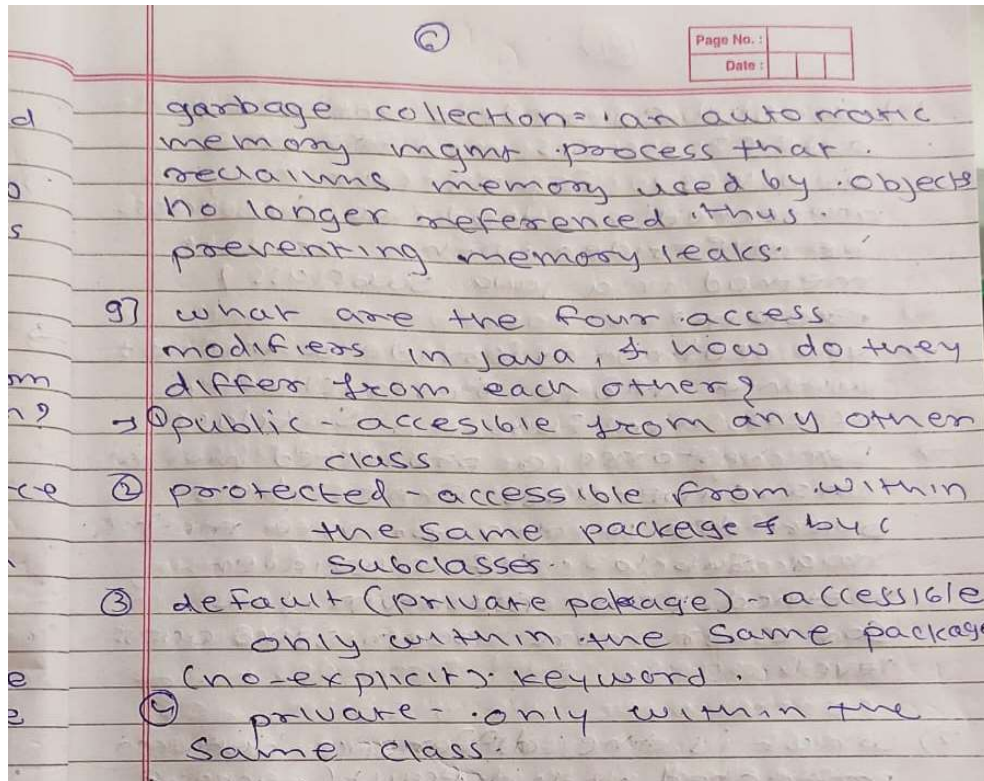 6
Page No. :
Date :
garbage collection = an automatic
memory mgmt process that
reclaims memory used by objects
no longer referenced thus
preventing memory leaks.
9] what are the four access
modifiers in java, & how do they
differ from each other?
→ ① public - accesible from any other
class
② protected - accessible from within
the same package & by (
subclasses.
③ default (private pakage) - accessible
only within the same package
(no-explicit) keyword.
④ private - only within the
same class.
d
s
m
n?
ce
e